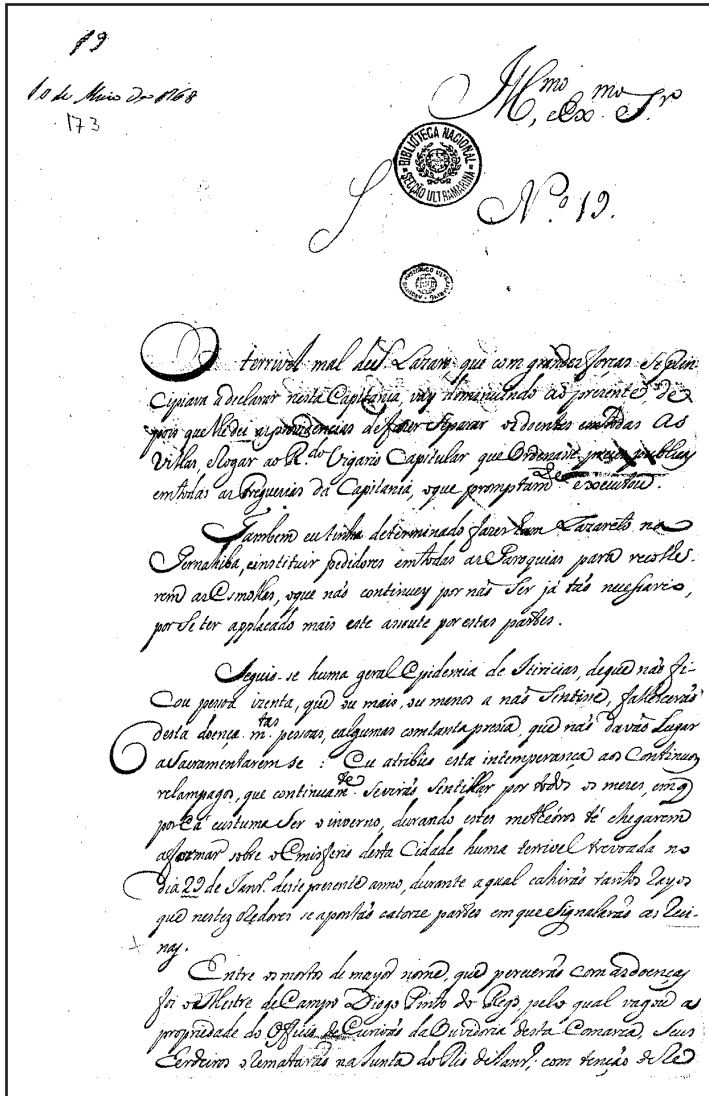 19
10 de Março de 1768
173
Ill.mo, e Ex.mo S.r
BIBLIOTECA NACIONAL
SECÇÃO ULTRAMARINA
N.o 19.
O terrivel mal de S. Lazaro que com grandes forças se prin
cipiava a declarar nesta Capitania, vay diminuindo ao prezente de
pois que lhe dei as providencias de fazer separar os doentes em todas as
Villas, e Rogar ao R.do Vigario Capitular que Ordenasse preces publicas
em todas as Freguezias da Capitania, o que promptam.te executou.
Tambem eu tinha determinado fazer hum Lazareto na
Pernahiba, e instituir pedidores em todas as Paroquias para recolhe-
rem as Esmollas, o que não continuey por não ser já tão necessario,
por se ter applacado mais este assoute por estas partes.
Seguio-se huma geral Epidemia de Itiricias, de que não fi-
cou pessoa izenta, que ou mais, ou menos a não sentisse, falescerão
desta doença m.tas pessoas, e algumas com tanta pressa, que não davão Lugar
a Sacramentarem se : Eu atribuo esta intemperança aos Continuos
relampagos, que continuam.te se virão sentillar por todos os mezes, em q
por Cá custuma ser o inverno, durando estes metheóros té chegarem
a formar sobre o Emisferio desta Cidade huma terrivel trevoada no
dia 29 de Janr.o deste prezente anno, durante a qual cahirão tantos Rayos
que nestes Redores se apontão catorze partes em que signalarão as Rui-
nas.
Entre os mortos de mayor nome, que perecerão com as doenças
foi o Mestre de Campo Diogo Pinto do Rego pelo qual vagou a
propriedade do Officio de Escrivão da Ouvidoria desta Comarca, Seus
Erdeiros o Rematarão na Junta do Rio de Janr.o, com tenção de Re